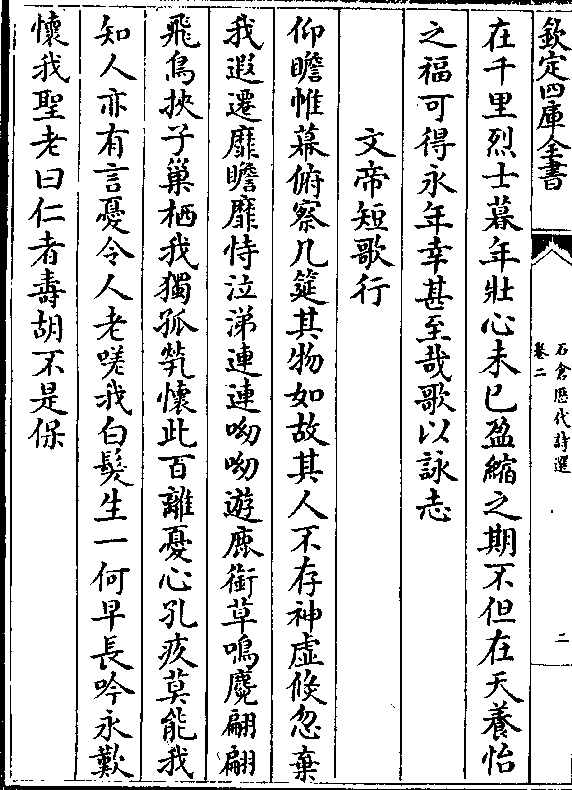 欽定四庫全書
石倉歷代詩選
卷二
二
在千里烈士暮年壯心未已盈縮之期不但在天養怡
之福可得永年幸甚至哉歌以詠志
文帝短歌行
仰瞻帷幕俯察几筵其物如故其人不存神虚倐忽棄
我遐遷靡瞻靡恃泣涕連連呦呦遊鹿銜草鳴麑翩翩
飛鳥挾子巢栖我獨孤煢懷此百離憂心孔疚莫能我
知人亦有言憂令人老嗟我白髮生一何早長吟永歎
懷我聖老曰仁者壽胡不是保